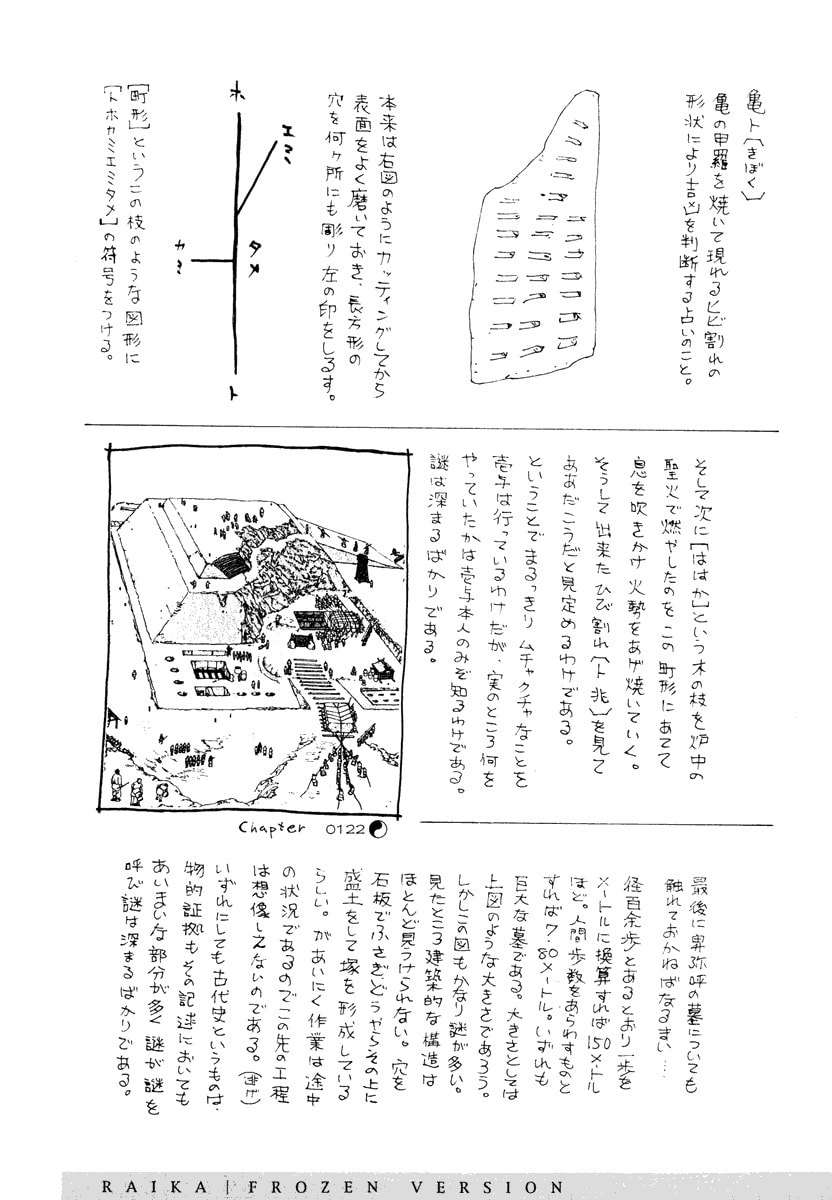 亀卜〔きぼく〕
亀の甲羅を焼いて現れるヒビ割れの
形状により吉凶を判断する占いのこと。
本来は右図のようにカッティングしてから
表面をよく磨いておき、長方形の
穴を何ヶ所にも彫り左の印をしるす。
ホ
エミ
タメ
カミ
ト
【町形】というこの枝のような図形に
【トホカミエミタメ】の符号をつける。
そして次に【ははか】という木の枝を炉中の
聖火で燃やしたのをこの町形にあてて
息を吹きかけ火勢をあげ焼いていく。
そうして出来たひび割れ〔卜兆〕を見て
ああだこうだと見定めるわけである。
ということでまるっきりムチャクチャなことを
壱与は行っているわけだが、実のところ何を
やっていたかは壱与本人のみぞ知るわけである。
謎は深まるばかりである。
Chapter 0122
最後に卑弥呼の墓についても
触れておかねばなるまい…
径百余歩とあるとおり一歩を
メートルに換算すれば150メートル
ほど。人間歩数をあらわすものと
すれば7・80メートル。いずれも
巨大な墓である。大きさとしては
上図のような大きさであろう。
しかしこの図もかなり謎が多い。
見たところ建築的な構造は
ほとんど見つけられない。穴を
石板でふさぎどうやらその上に
盛土をして塚を形成している
らしい。があいにく作業は途中
の状況であるのでこの先の工程
は想像しえないのである。
いずれにしても古代史というものは、
物的証拠もその記述においても
あいまいな部分が多く謎が謎を
呼び謎は深まるばかりである。
RAIKA | FROZEN VERSION